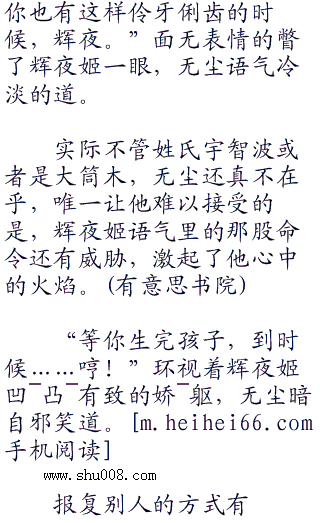 你也有这样伶牙俐齿的时
候，辉夜。”面无表情的瞥
了辉夜姬一眼，无尘语气冷
淡的道。
实际不管姓氏宇智波或
者是大筒木，无尘还真不在
乎，唯一让他难以接受的
是，辉夜姬语气里的那股命
令还有威胁，激起了他心中
的火焰。(有意思书院)
“等你生完孩子，到时
候……哼！”环视着辉夜姬
凹¯凸¯有致的娇¯躯，无尘暗
自邪笑道。[m.heihei66.com
手机阅读]
www.shu008.com
报复别人的方式有